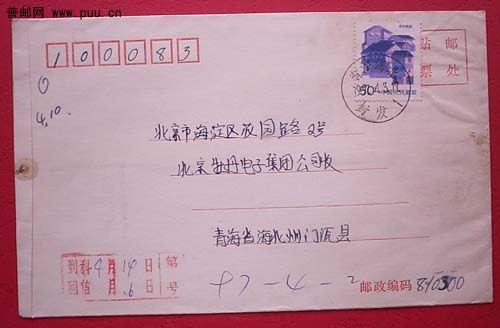 普邮网 www.puu.cn
100083
贴 邮
票 处
50
4.10.
北京市海淀区花园路2号
北京牡丹电子集团公司收
青海省海北州门源县
到科 4月14日 第
回信 月.6日 号
97-4-2
邮政编码 810300